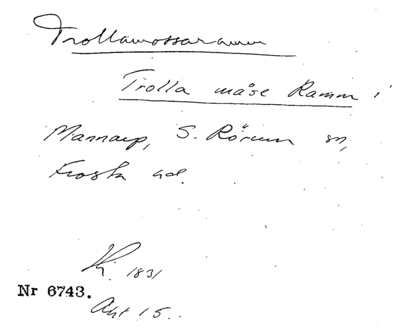 Trollamossaramm
Trolla måse Ramm i
Mannarp, S. Rörum sn,
Frosta hd.
1831
Nr 6743.
Akt 15.